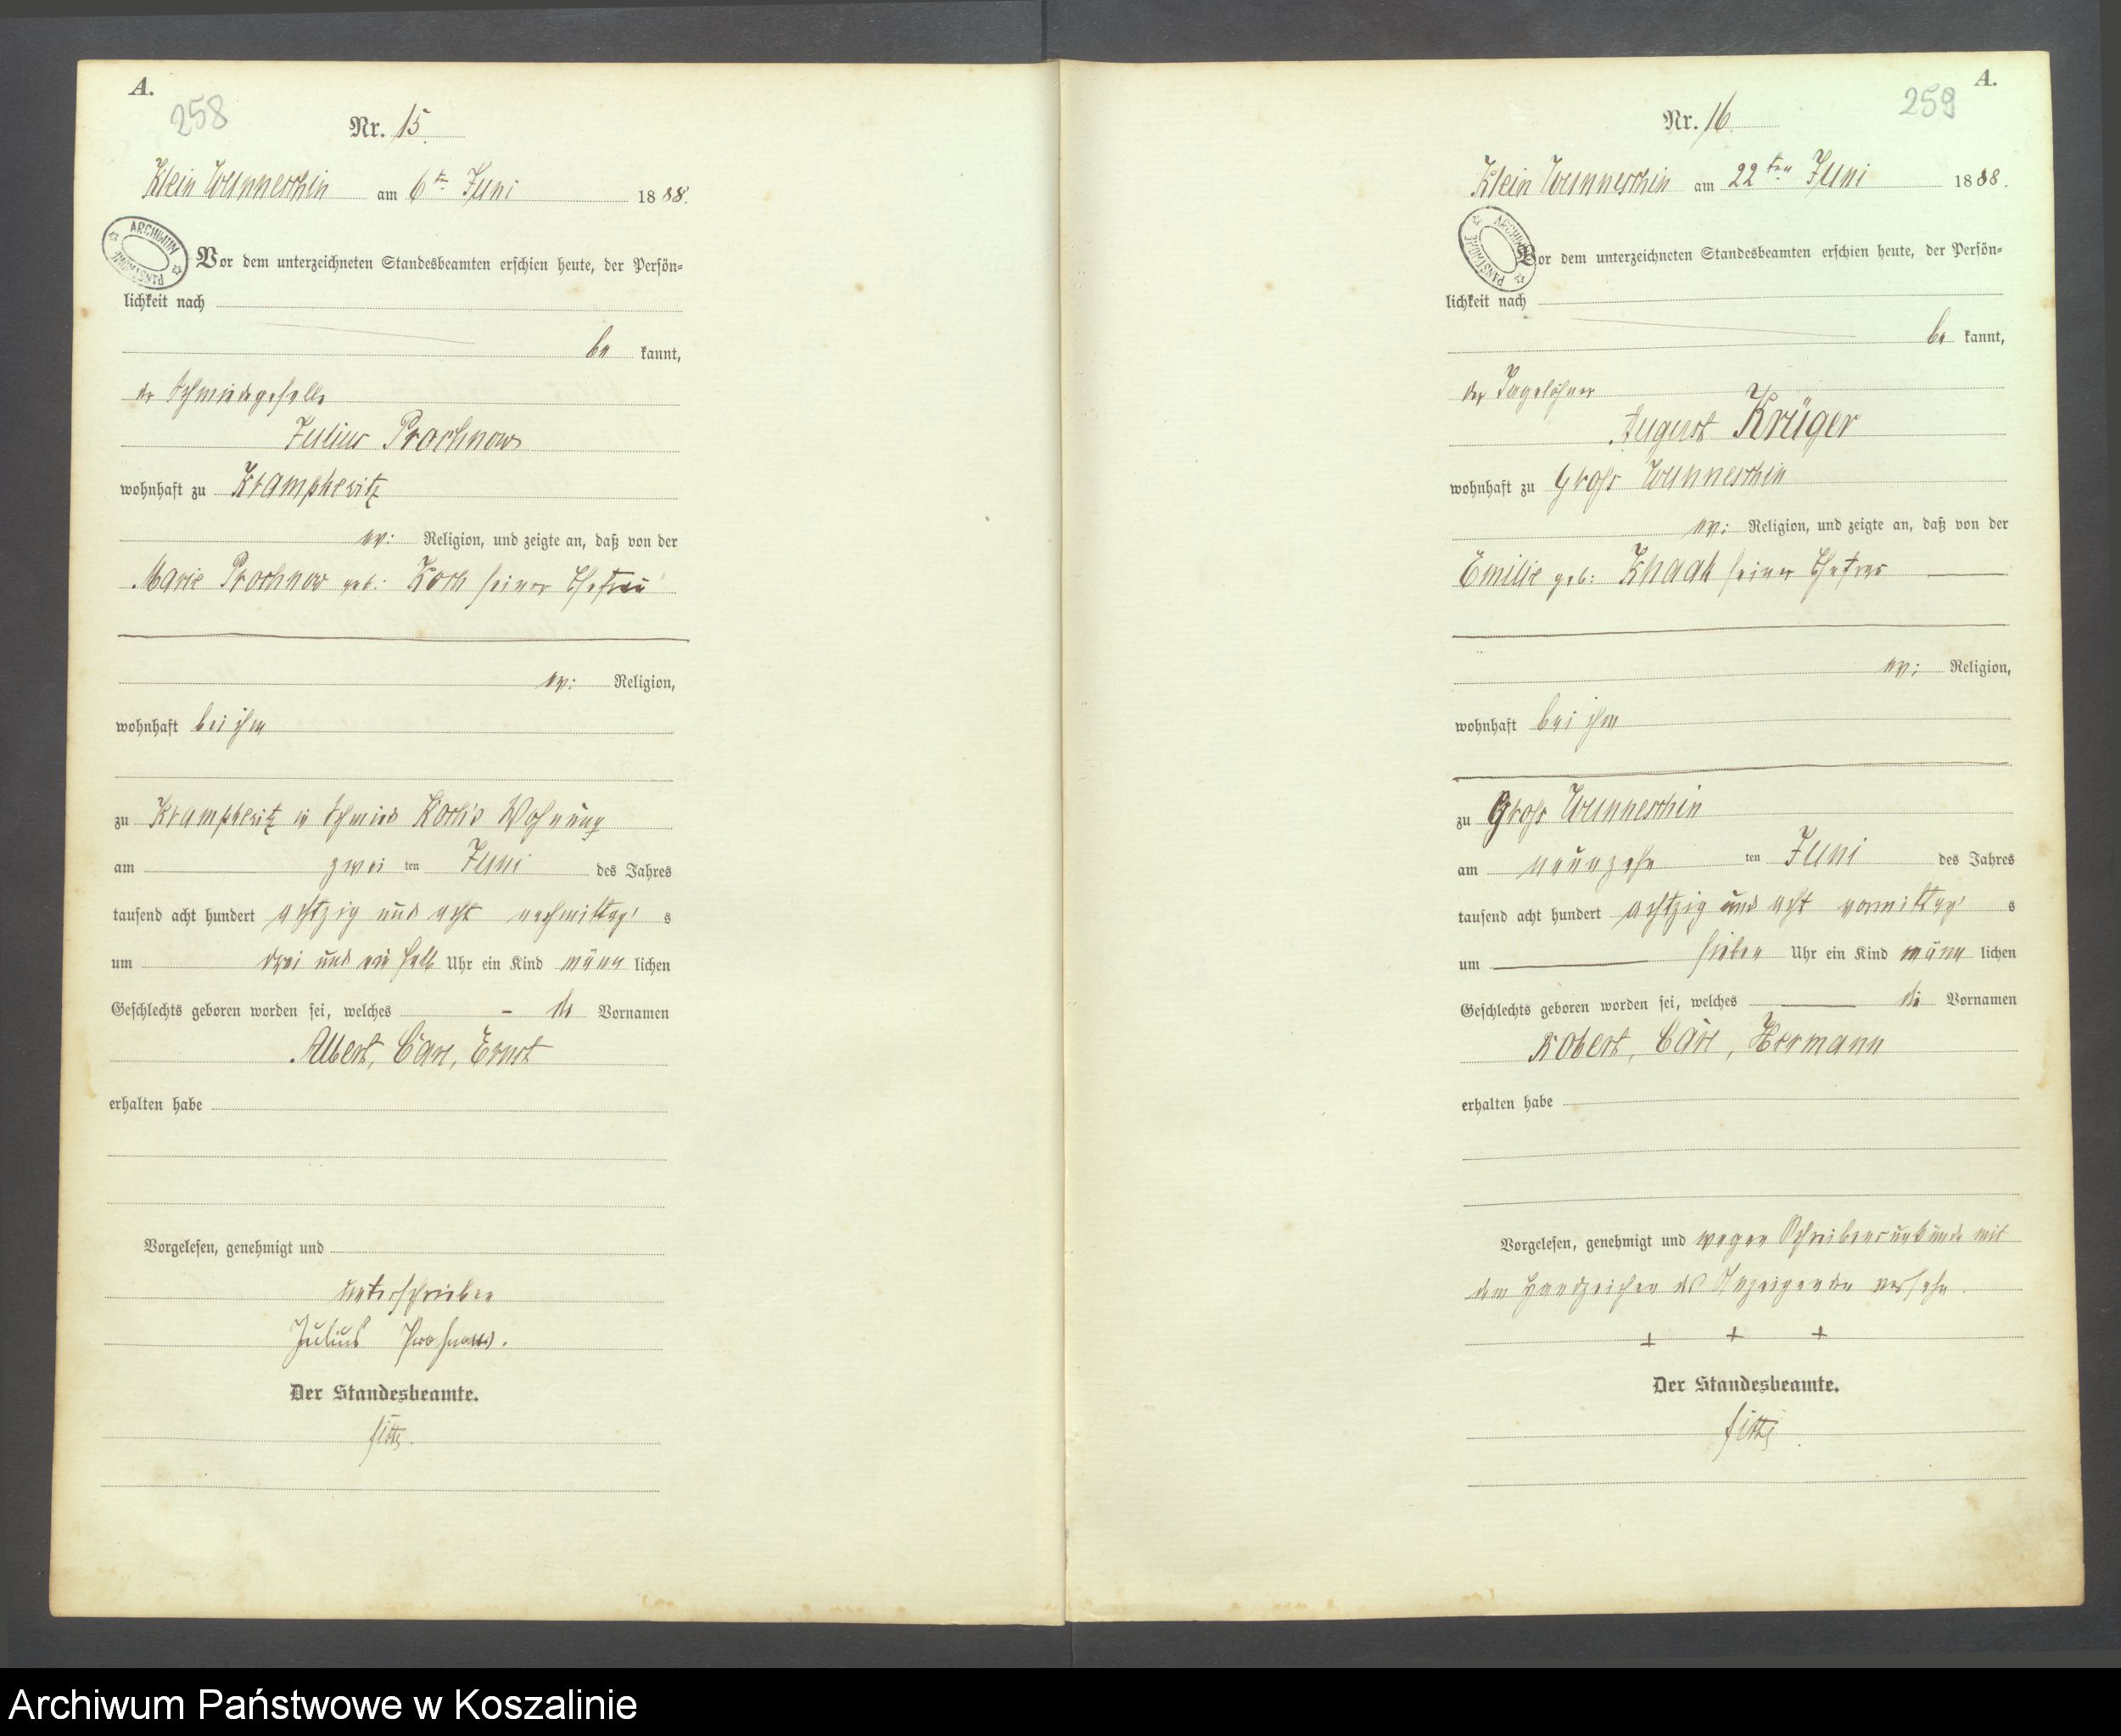 A.
258
Nr. 15.
Klein Wunneschin am 6ten Juni 1888.
ARCHIWUM PAŃSTWOWE
Vor dem unterzeichneten Standesbeamten erschien heute, der Persön-
lichkeit nach
be kannt,
der Schmiedegeselle
Julius Prochnow
wohnhaft zu Krampkewitz
ev: Religion, und zeigte an, daß von der
Marie Prochnow geb: Koch seiner Ehefrau
ev: Religion,
wohnhaft bei ihm
zu Krampkewitz in Schmied Koch's Wohnung
am zwei ten Juni des Jahres
tausend acht hundert achtzig und acht nachmittag s
um drei und ein halb Uhr ein Kind männ lichen
Geschlechts geboren worden sei, welches - die Vornamen
Albert, Carl, Ernst
erhalten habe
Vorgelesen, genehmigt und
unterschrieben
Julius Prochnow.
Der Standesbeamte.
A.
259
Nr. 16
Klein Wunneschin am 22ten Juni 1888.
ARCHIWUM PAŃSTWOWE
Vor dem unterzeichneten Standesbeamten erschien heute, der Persön-
lichkeit nach
be kannt,
der Tagelöhner
August Krüger
wohnhaft zu Groß Wunneschin
ev: Religion, und zeigte an, daß von der
Emilie geb: Knaak seiner Ehefrau
ev: Religion,
wohnhaft bei ihm
zu Groß Wunneschin
am neunzehn ten Juni des Jahres
tausend acht hundert achtzig und acht vormittag s
um sieben Uhr ein Kind männ lichen
Geschlechts geboren worden sei, welches die Vornamen
Robert, Carl, Hermann
erhalten habe
Vorgelesen, genehmigt und wegen Schreibensunkunde mit
dem Handzeichen des Anzeigenden versehn.
+ + +
Der Standesbeamte.
Archiwum Państwowe w Koszalinie